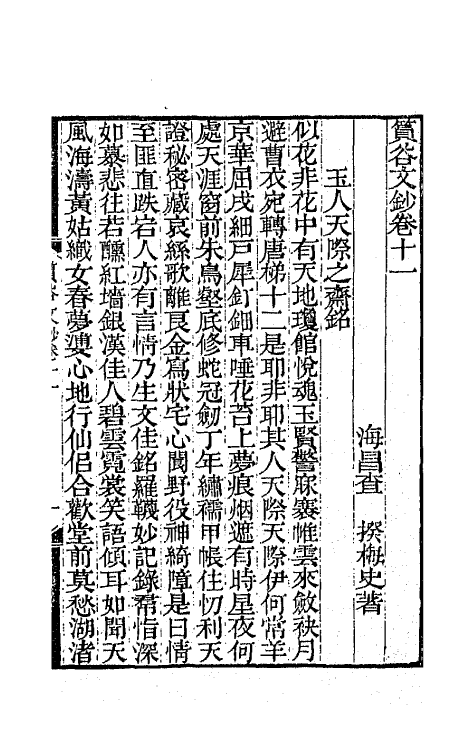 篔谷文鈔卷十一
海昌查　揆梅史著
玉人天際之齋銘
似花非花中有天地瓊館悅魂玉賢警寐褰帷雲來斂袂月
避曹衣宛轉唐梯十二是耶非耶其人天際天際伊何常羊
京華屈戌細戸犀釘鈿車唾花苔上夢痕烟遮有時星夜何
處天涯窗前朱鳥壑底修蛇冠劒丁年繡襦甲帳住忉利天
證秘密藏哀絲歌離良金寫狀宅心閒野役神綺障是曰情
至匪直跌宕人亦有言情乃生文佳銘羅韈妙記錄帬恉深
如慕悲往若醺紅墻銀漢佳人碧雲霓裳笑語傾耳如聞天
風海濤黃姑織女春夢婆心地行仙侣合歡堂前莫愁湖渚
篔谷文鈔卷十一
一